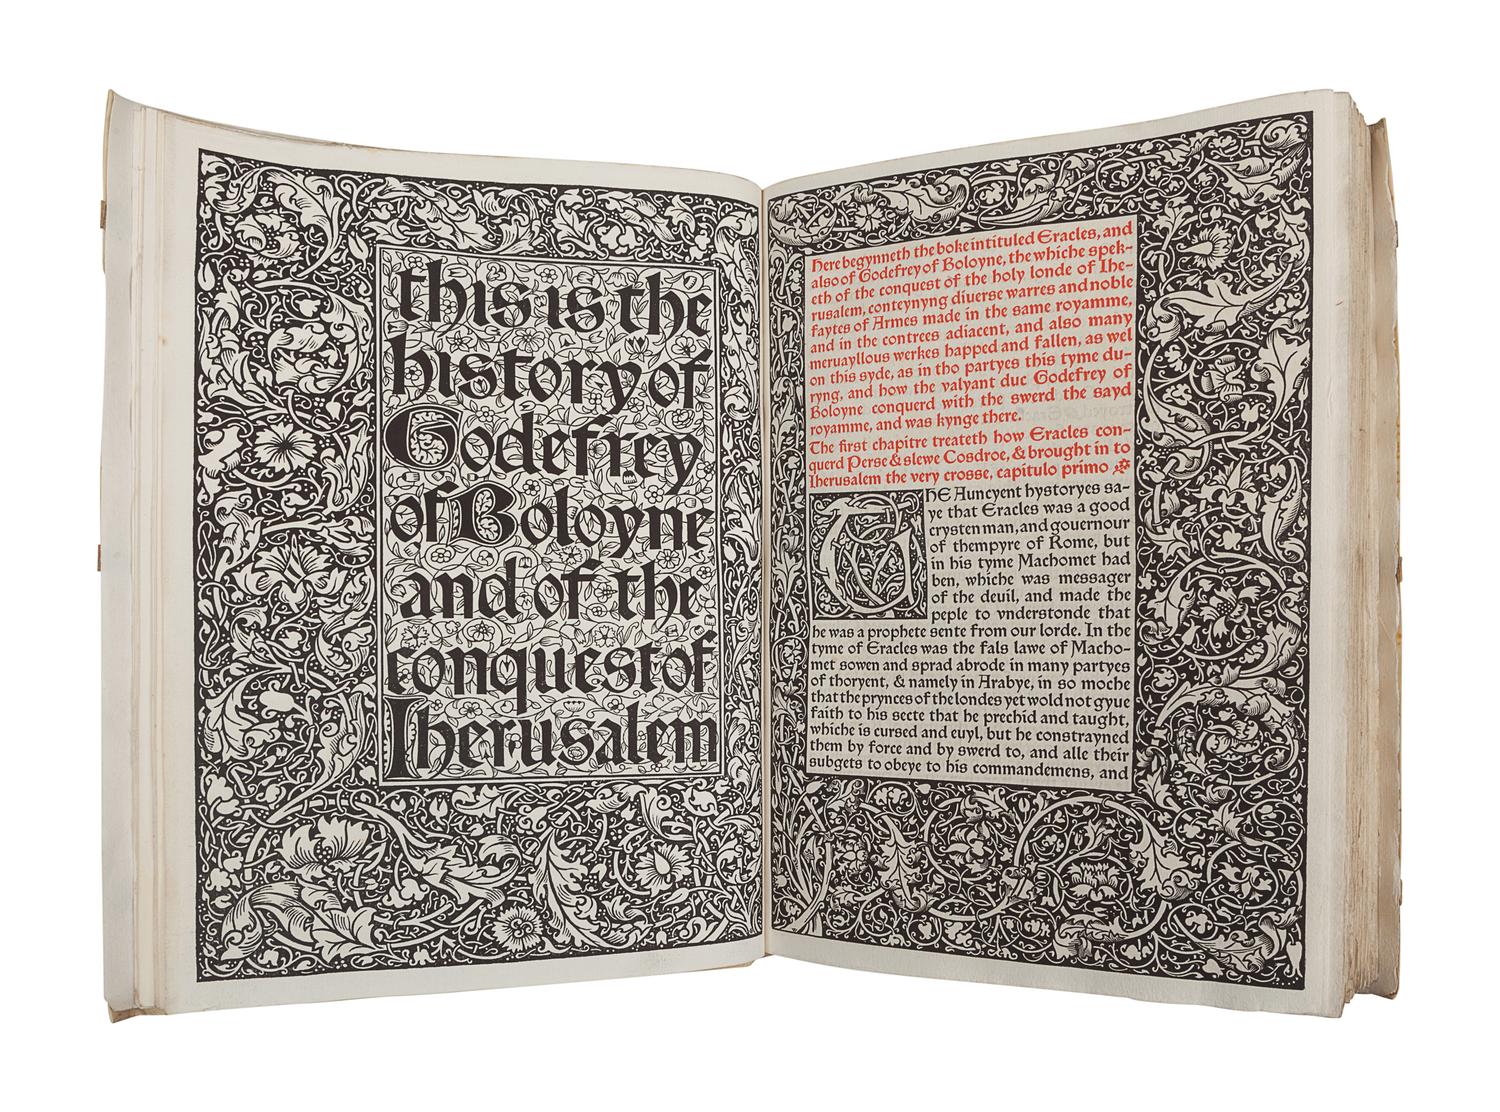 this is the
history of
Godefrey
of Boloyne
and of the
conquest of
Iherusalem
Here begynneth the boke intituled Eracles, and
also of Godefrey of Boloyne, the whiche spek-
eth of the conquest of the holy londe of Ihe-
rusalem, conteynyng diuerse warres and noble
faytes of Armes made in the same royamme,
and in the contrees adiacent, and also many
meruayllous werkes happed and fallen, as wel
on this syde, as in tho partyes this tyme du-
ryng, and how the valyant duc Godefrey of
Boloyne conquerd with the swerd the sayd
royamme, and was kynge there.
The first chapitre treateth how Eracles con-
querd Perse & slewe Cosdroe, & brought in to
Iherusalem the very crosse, capitulo primo
THE Auncyent hystoryes sa-
ye that Eracles was a good
crysten man, and gouernour
of thempyre of Rome, but
in his tyme Machomet had
ben, whiche was messager
of the deuil, and made the
peple to vnderstonde that
he was a prophete sente from our lorde. In the
tyme of Eracles was the fals lawe of Macho-
met sowen and sprad abrode in many partyes
of thoryent, & namely in Arabye, in so moche
that the prynces of the londes yet wold not gyue
faith to his secte that he prechid and taught,
whiche is cursed and euyl, but he constrayned
them by force and by swerd to, and alle their
subgets to obeye to his commandemens, and